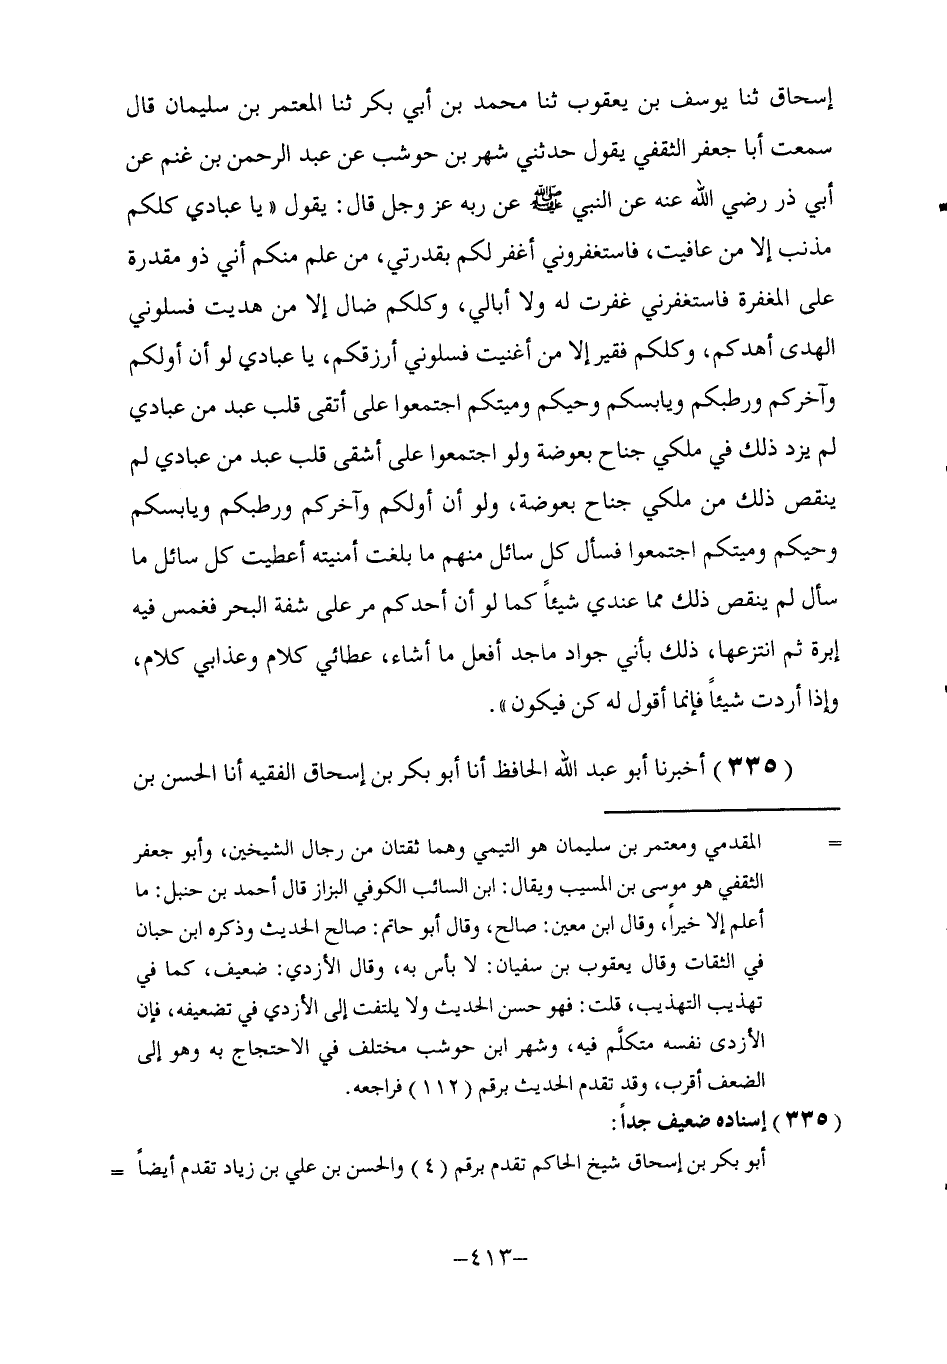 إسحاق ثنا يوسف بن يعقوب ثنا محمد بن أبي بكر ثنا المعتمر بن سليمان قال
سمعت أبا جعفر الثقفي يقول حدثني شهر بن حوشب عن عبد الرحمن بن غنم عن
أبي ذر رضي الله عنه عن النبي ﷺ عن ربه عز وجل قال: يقول « يا عبادي كلكم
مذنب إلا من عافيت، فاستغفروني أغفر لكم بقدرتي، من علم منكم أني ذو مقدرة
على المغفرة فاستغفرني غفرت له ولا أبالي، وكلكم ضال إلا من هديت فسلوني
الهدى أهدكم، وكلكم فقير إلا من أغنيت فسلوني أرزقكم، يا عبادي لو أن أولكم
وآخركم ورطبكم ويابسكم وحيكم وميتكم اجتمعوا على أتقى قلب عبد من عبادي
لم يزد ذلك في ملكي جناح بعوضة ولو اجتمعوا على أشقى قلب عبد من عبادي لم
ينقص ذلك من ملكي جناح بعوضة، ولو أن أولكم وآخركم ورطبكم ويابسكم
وحيكم وميتكم اجتمعوا فسأل كل سائل منهم ما بلغت أمنيته أعطيت كل سائل ما
سأل لم ينقص ذلك مما عندي شيئاً كما لو أن أحدكم مر على شفة البحر فغمس فيه
إبرة ثم انتزعها، ذلك بأني جواد ماجد أفعل ما أشاء، عطائي كلام وعذابي كلام،
وإذا أردت شيئاً فإنما أقول له كن فيكون ».
(٣٣٥) أخبرنا أبو عبد الله الحافظ أنا أبو بكر بن إسحاق الفقيه أنا الحسن بن
= المقدمي ومعتمر بن سليمان هو التيمي وهما ثقتان من رجال الشيخين، وأبو جعفر
الثقفي هو موسى بن المسيب ويقال: ابن السائب الكوفي البزاز قال أحمد بن حنبل: ما
أعلم إلا خيراً، وقال ابن معين: صالح، وقال أبو حاتم: صالح الحديث وذكره ابن حبان
في الثقات وقال يعقوب بن سفيان: لا بأس به، وقال الأزدي: ضعيف، كما في
تهذيب التهذيب، قلت: فهو حسن الحديث ولا يلتفت إلى الأزدي في تضعيفه، فإن
الأزدى نفسه متكلَّم فيه، وشهر ابن حوشب مختلف في الاحتجاج به وهو إلى
الضعف أقرب، وقد تقدم الحديث برقم (١١٢) فراجعه.
(٣٣٥) إسناده ضعيف جداً:
أبو بكر بن إسحاق شيخ الحاكم تقدم برقم (٤) والحسن بن علي بن زياد تقدم أيضاً =
-٤١٣-